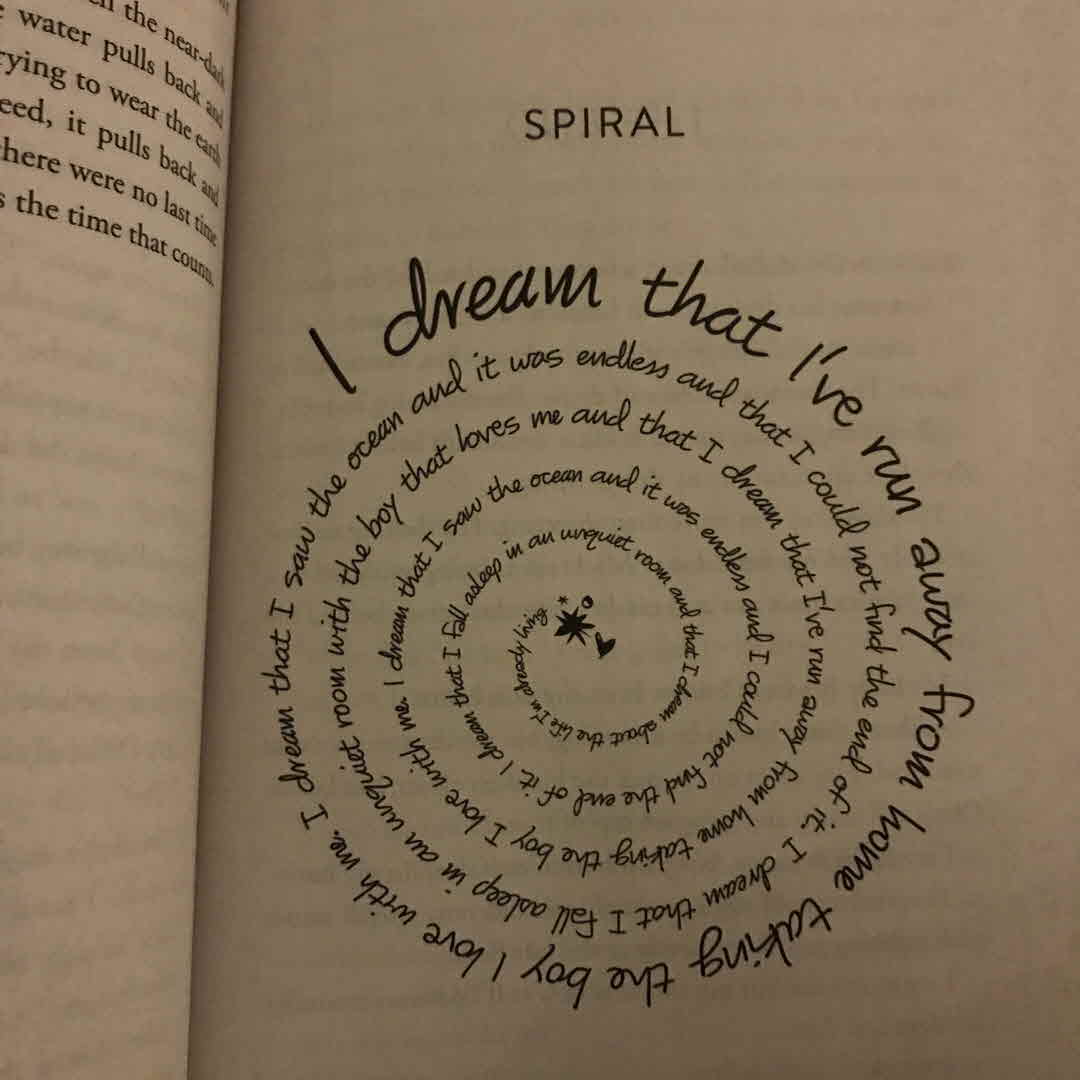 the near-dark
water pulls back and
to wear the earth
it pulls back and
there were no last time
the time that counts.
SPIRAL
I dream that I've run away from home taking the boy I love with me. I dream that I saw the ocean and it was endless and that I could not find the end of it. I dream that I fall asleep in an unquiet room with the boy that loves me and that I dream that I've run away from home taking the boy I love with me. I dream that I saw the ocean and it was endless and I could not find the end of it. I dream that I fall asleep in an unquiet room and that I dream about the life I'm already living